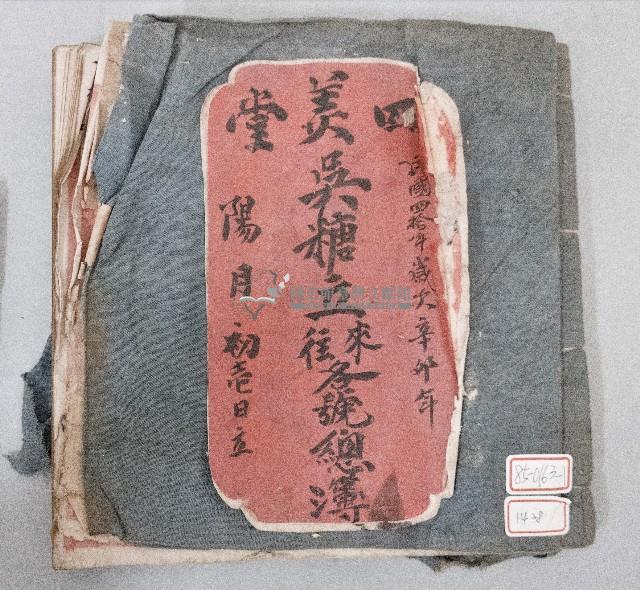 四美堂
民國四拾年歲次辛卯年
吳糖立來往各號總簿
陽月初壹日立
85-0163-1